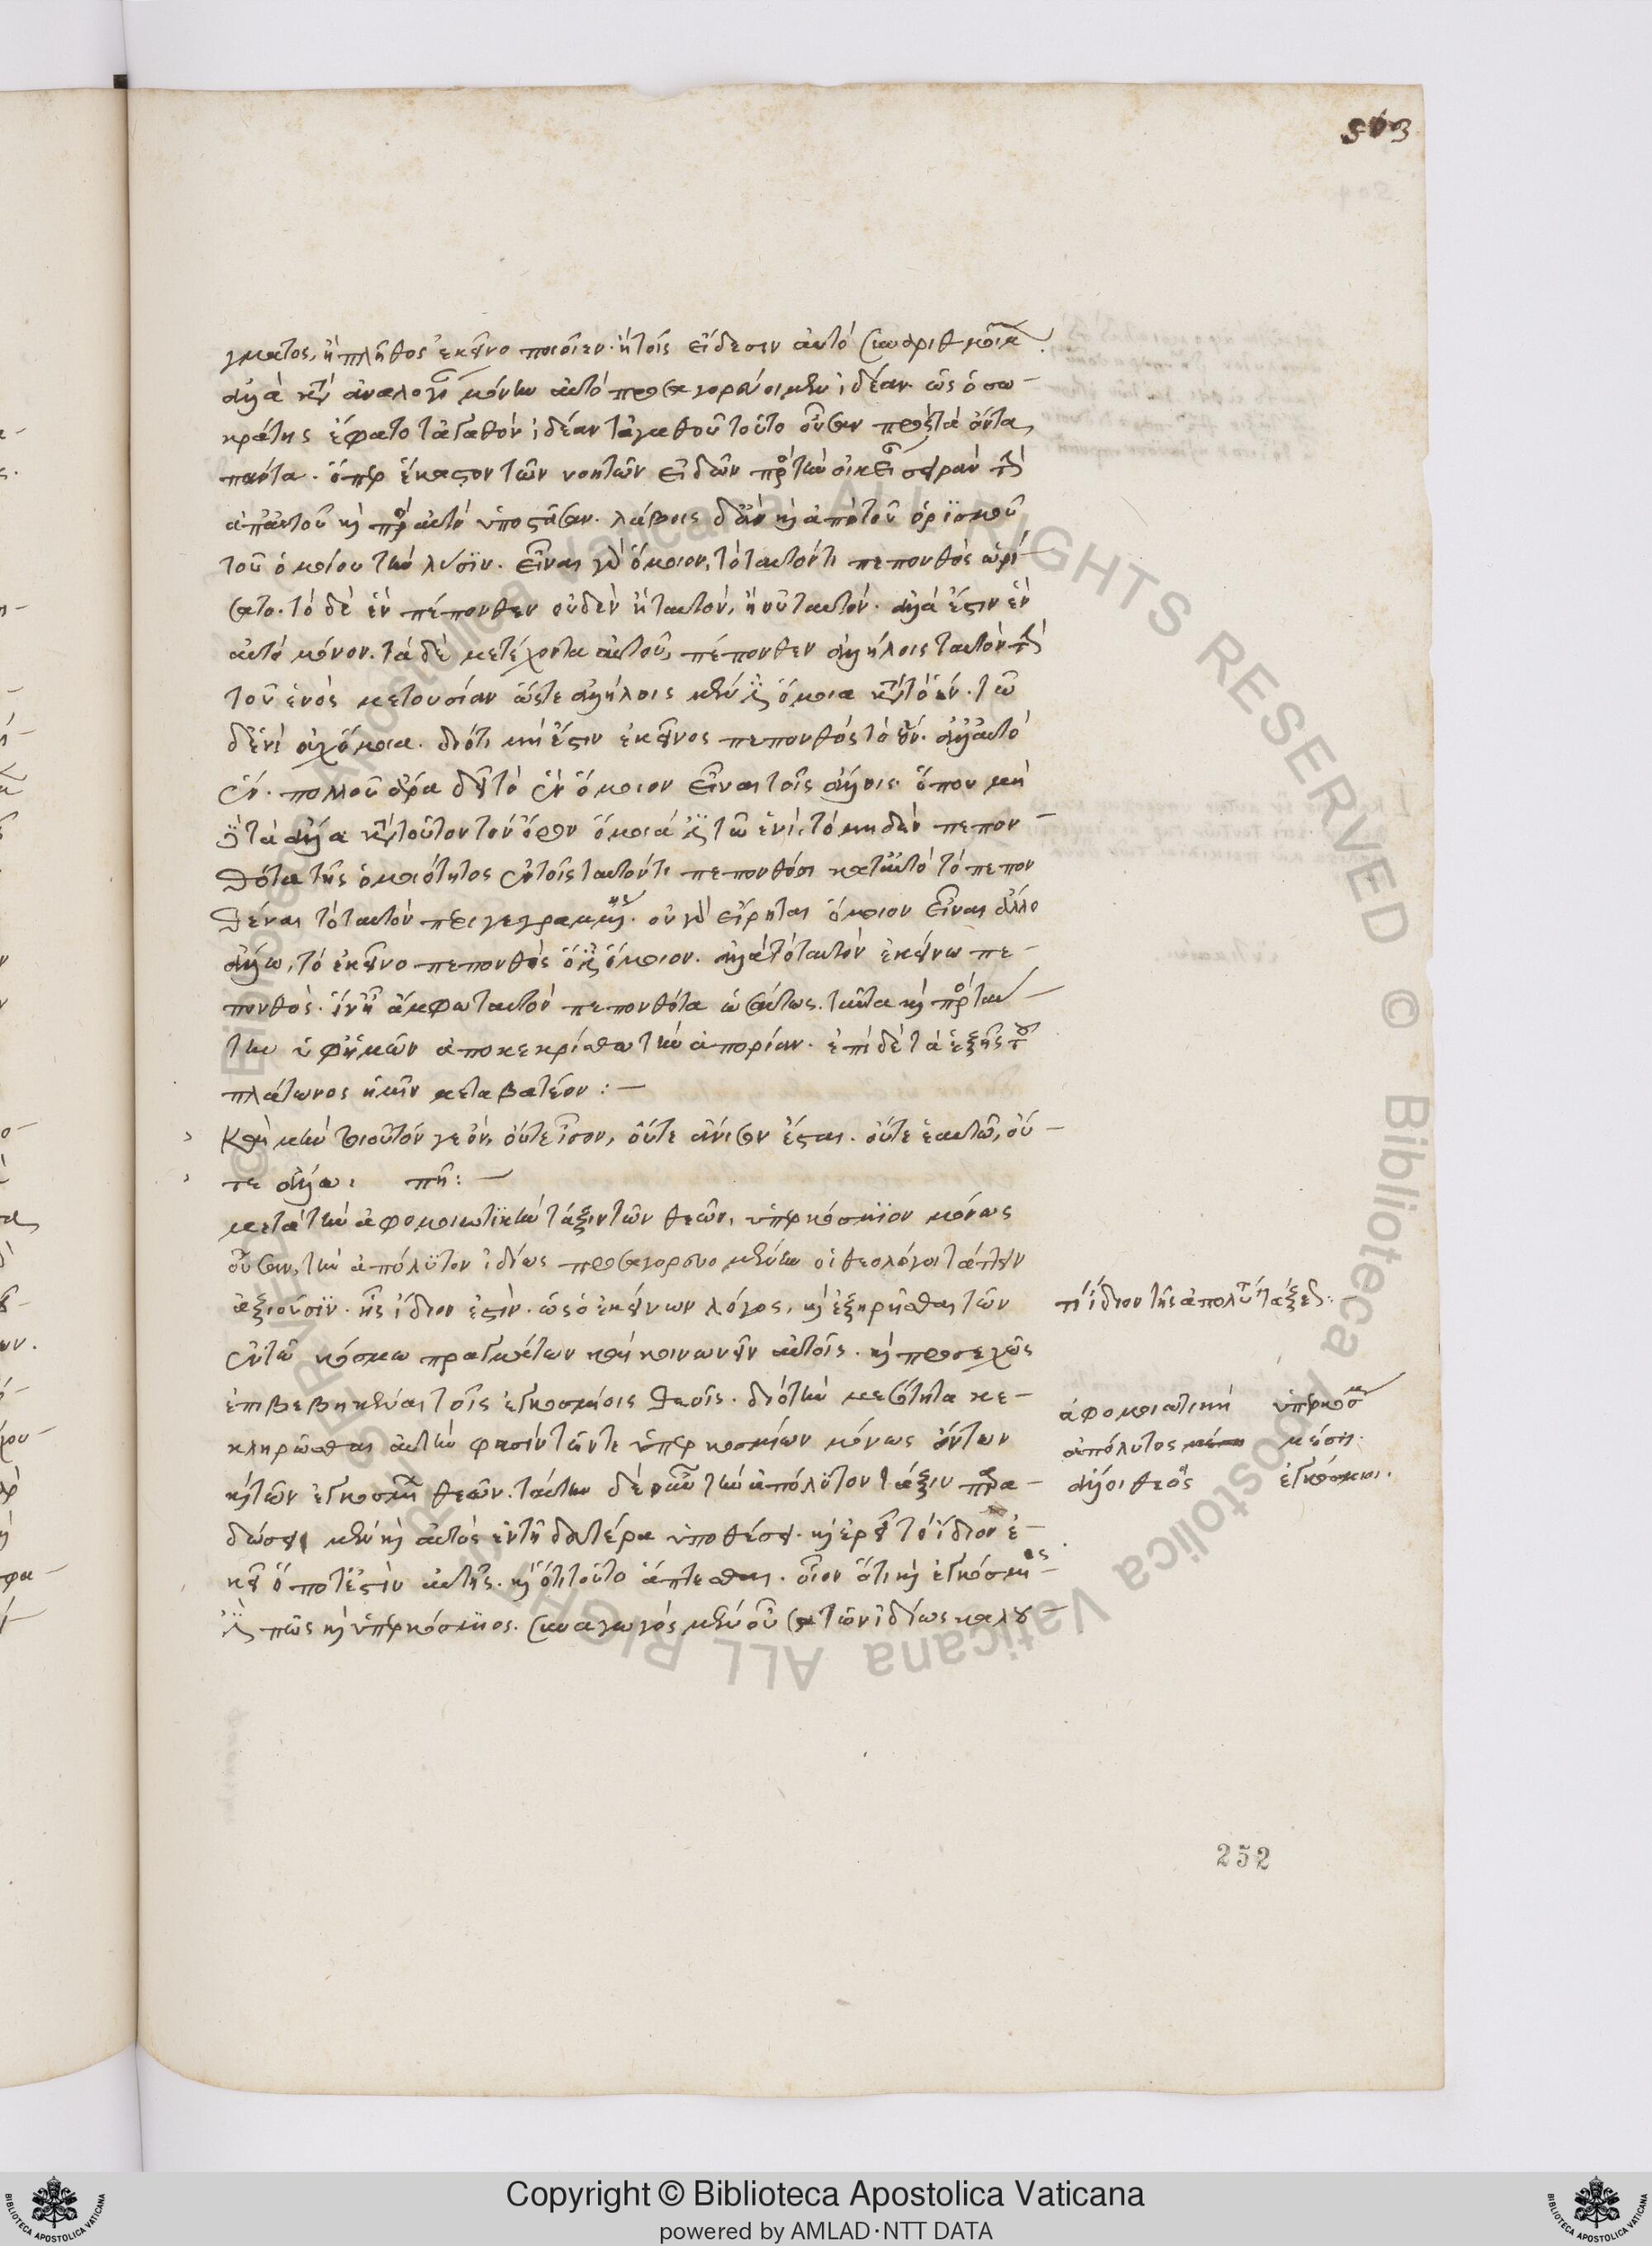 503
γματος, ἢ πλῆθος ἐκεῖνο ποιοῖμεν. ἢ τοῖς εἴδεσιν αὐτὸ συναριθμοῖμεν.
ἀλλὰ κατ' ἀναλογίαν μόνην αὐτὸ προσαγορεύοιμεν ἰδέαν. ὡς ὁ σω-
κράτης ἔφατο τἀγαθὸν ἰδέαν τἀγαθοῦ τοῦτο οὖσαν πρὸς τὰ ὄντα
πάντα. ὅπερ ἕκαστον τῶν νοητῶν εἰδῶν πρὸς τὴν οἰκείαν σειρὰν τὴν
ἀπ' αὐτοῦ καὶ πρὸς αὐτὸ ὑποστᾶσαν. λάβοις δ' ἂν καὶ ἀπὸ τοῦ ὁρισμοῦ
τοῦ ὁμοίου τὴν λύσιν. εἶναι γὰρ ὅμοιον, τὸ ταὐτόν τι πεπονθὸς ὡρί-
σατο. τὸ δὲ ἓν πέπονθεν οὐδὲν ἢ ταὐτόν, ἢ οὐ ταὐτόν. ἀλλά ἐστιν ἓν
αὐτὸ μόνον. τὰ δὲ μετέχοντα αὐτοῦ, πέπονθεν ἀλλήλοις ταὐτὸν τὴν
τοῦ ἑνὸς μετουσίαν ὥστε ἀλλήλοις μέν ἐστιν ὅμοια κατὰ τὸ ἕν. τῷ
δὲ ἑνὶ οὐχ ὅμοια. διότι μή ἐστιν ἐκεῖνος πεπονθὸς τὸ ἕν. ἀλλ' αὐτὸ
ἕν. πολλοῦ ἄρα δεῖ τὸ ἓν ὅμοιον εἶναι τοῖς ἄλλοις ὅπου μὴ
δὲ τὰ ἄλλα κατὰ τοῦτον τὸν ὅρον ὅμοιά ἐστι τῷ ἑνί. τὸ μηδὲν πεπον-
θότα τῆς ὁμοιότητος ἐν τοῖς ταὐτόν τι πεπονθόσι κατ' αὐτὸ τὸ πεπον
θέναι τὸ ταὐτὸν περιγεγραμμένης. οὐ γὰρ εἴρηται ὅμοιον εἶναι ἄλλο
ἄλλω, τὸ ἐκεῖνο πεπονθὸς ὅ ἐστιν ὅμοιον. ἀλλὰ τὸ ταὐτὸν ἐκείνω πε-
πονθὸς. ἵν' ἦ ἄμφω ταὐτὸν πεπονθότα ὡσαύτως. ταῦτα καὶ πρὸς ταύ-
την ὑφ' ἡμῶν ἀποκεκρίσθω τὴν ἀπορίαν. ἐπὶ δὲ τὰ ἑξῆς τοῦ
πλάτωνος ἡμῖν μεταβατέον :—
Καὶ μὴν τοιοῦτόν γε ὂν, οὔτε ἴσον, οὔτε ἄνισον ἔσται. οὔτε ἑαυτῶ, οὔ-
τε ἄλλω. πῆ :—
μετὰ τὴν ἀφομοιωτικὴν τάξιν τῶν θεῶν, ὑπερκόσμιον μόνως
οὖσαν, τὴν ἀπόλυτον ἰδίως προσαγορευομένην οἱ θεολόγοι τάττειν
ἀξιοῦσιν. ἧς ἴδιόν ἐστιν. ὡς ὁ ἐκείνων λόγος, καὶ ἐξηρῆσθαι τῶν
ἐν τῶ κόσμω πραγμάτων καὶ κοινωνεῖν αὐτοῖς. καὶ προσεχῶς
ἐπιβεβηκέναι τοῖς ἐγκοσμίοις θεοῖς. διὸ τὴν μεσότητα κε-
κληρῶσθαι αὐτήν φασιν τῶν τε ὑπερκοσμίων μόνως ὄντων
καὶ τῶν ἐγκοσμίων θεῶν. ταύτην δὲ οὖν τὴν ἀπόλυτον τάξιν παρα-
δώσει μὲν καὶ αὐτὸς ἐν τῇ δευτέρα ὑποθέσει. καὶ ἐρεῖ τὸ ἴδιον ἐ-
κεῖ ὅ ποτέ ἐστιν αὐτῆς. καὶ ὅτι τοῦτο ἅπτεσθαι. οἷον ὅτι καὶ ἐγκόσμιός
ἐστί πως καὶ ὑπερκόσμιος. συναγωγὸς μὲν οὖσα τῶν ἰδίως καλου-
τί ἴδιον τῆς ἀπολύτου τάξεως:
ἀφομοιωτική ὑπερκόσμιος
ἀπόλυτος μέση μέση.
ἄλλοι θεοὶ ἐγκόσμιοι.
252
© Biblioteca Apostolica Vaticana ALL RIGHTS RESERVED © Biblioteca Apostolica Vaticana ALL RIGHTS RESERVED
Copyright © Biblioteca Apostolica Vaticana
powered by AMLAD·NTT DATA
BIBLIOTECA APOSTOLICA VATICANA
BIBLIOTECA APOSTOLICA VATICANA